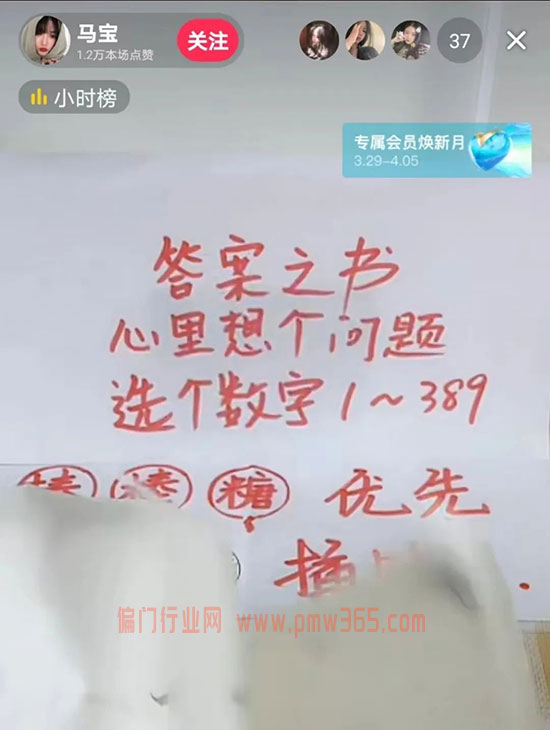 马宝
1.2万本场点赞
关注
37
小时榜
专属会员焕新月
3.29-4.05
答案之书
心里想个问题
选个数字1~389
棒棒糖 优先
偏门行业网 www.pmw365.com